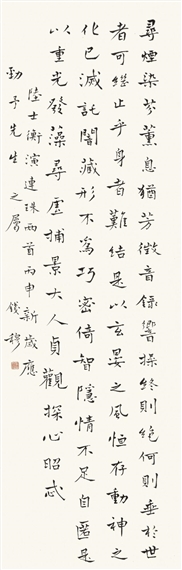 尋煙染芬薰息猶芳徵音錄響操終則絕何則垂於世
者可繼止乎身者難結是以玄晏之風恒存動神之
化已滅託闇藏形不為巧密倚智隱情不足自匿是
以重光發藻尋虛捕景大人貞觀探心昭忒
陸士衡演連珠兩首丙申新歲應
勁予先生之屬